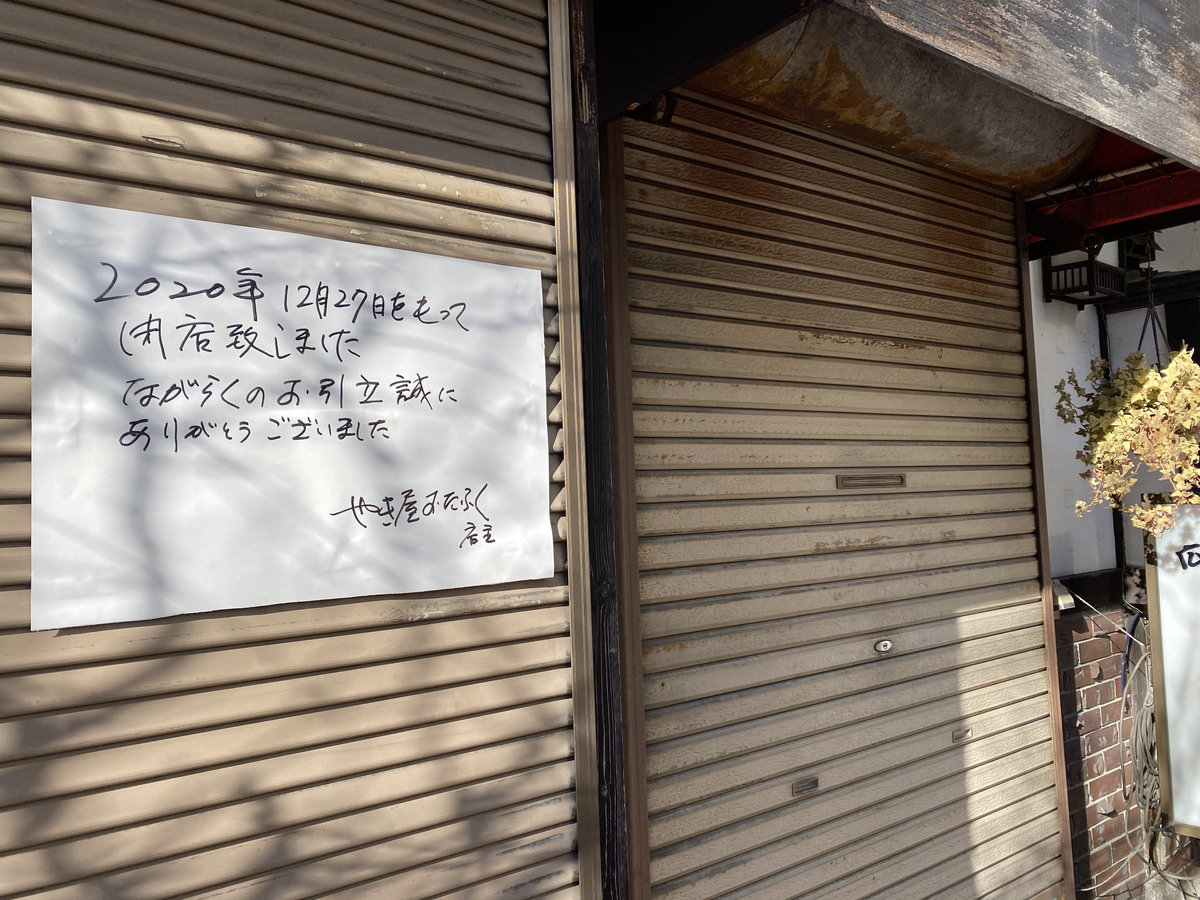 2020年 12月27日をもって
閉店致しました
ながらくのお引立誠に
ありがとうございました
やき屋おたふく
店主